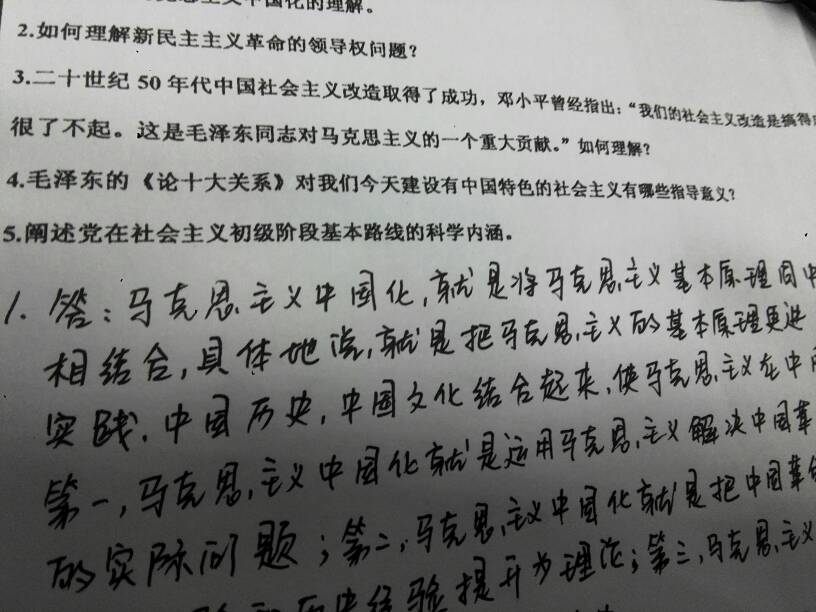 思主义中国化的理解。
2.如何理解新民主主义革命的领导权问题？
3.二十世纪 50 年代中国社会主义改造取得了成功，邓小平曾经指出：“我们的社会主义改造是搞得
很了不起。这是毛泽东同志对马克思主义的一个重大贡献。”如何理解？
4.毛泽东的《论十大关系》对我们今天建设有中国特色的社会主义有哪些指导意义？
5.阐述党在社会主义初级阶段基本路线的科学内涵。
1. 答：马克思主义中国化，就是将马克思主义基本原理同中
相结合，具体地说，就是把马克思主义的基本原理更进
实践、中国历史，中国文化结合起来，使马克思主义在中
第一，马克思主义中国化就是运用马克思主义解决中国革
的实际问题；第二，马克思主义中国化就是把中国革命
历史经验提升为理论；第三，马克思主义